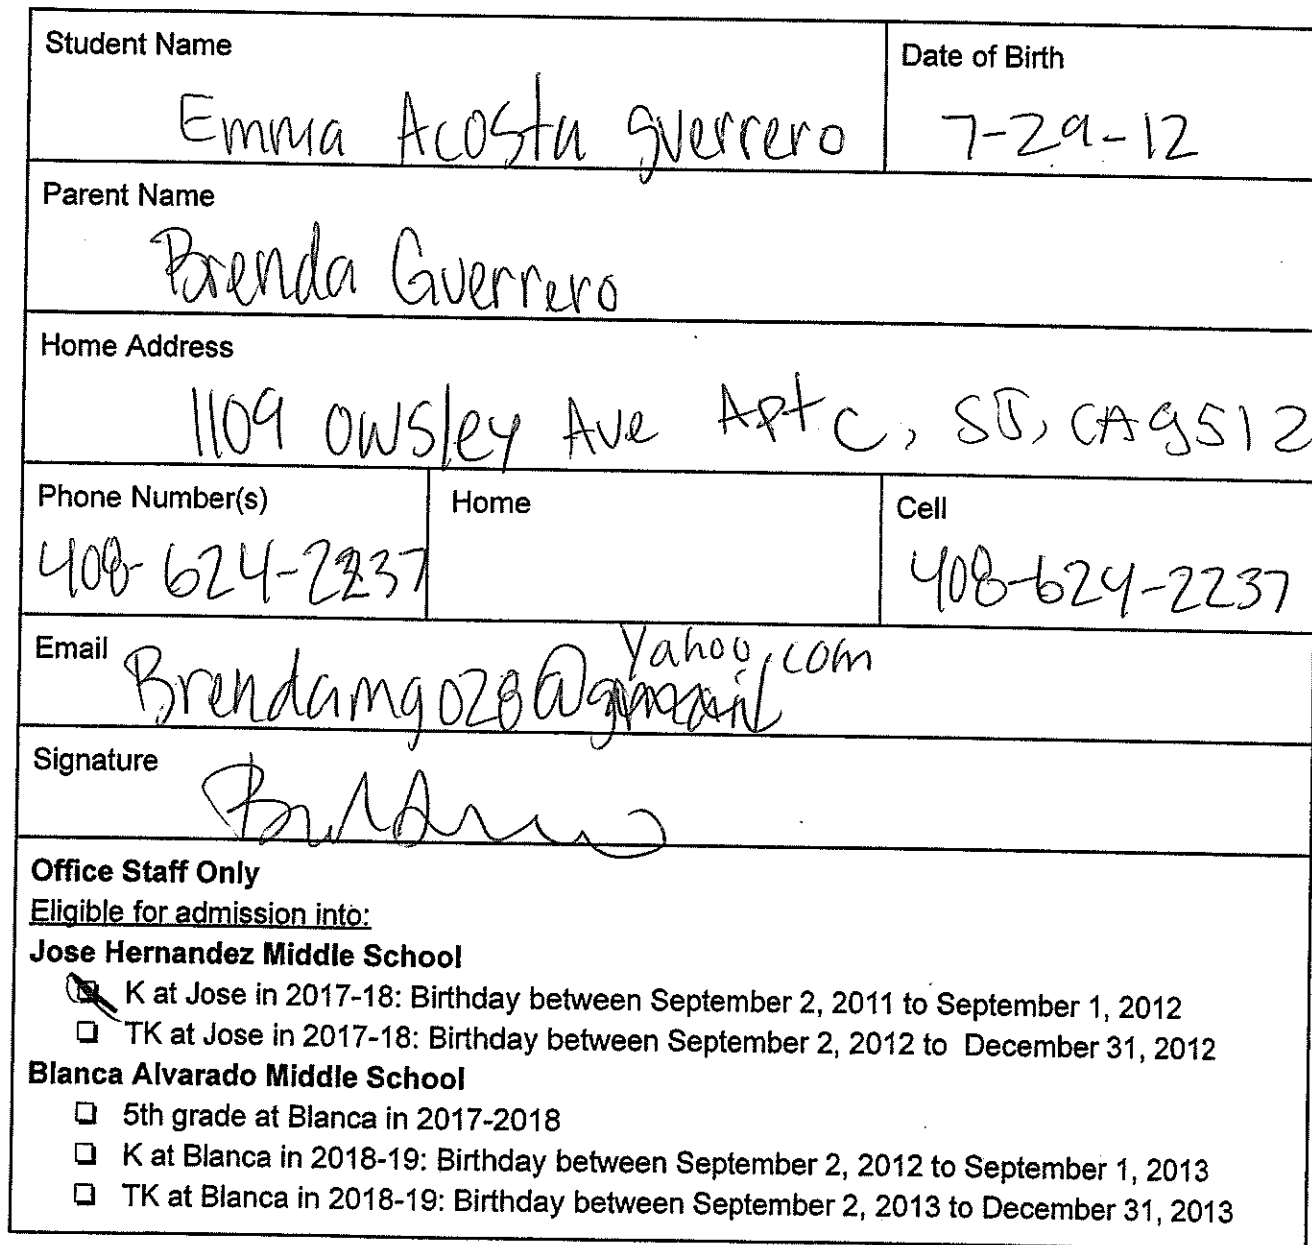 Student Name
Date of Birth
Emma Acosta Guerrero
7-29-12
Parent Name
Brenda Guerrero
Home Address
1109 Owsley Ave Apt C, SJ, CA 9512
Phone Number(s)
Home
Cell
408-624-2237
408-624-2237
Email
Yahoo.com
Brendamg028@gmail
Signature
Office Staff Only
Eligible for admission into:
Jose Hernandez Middle School
K at Jose in 2017-18: Birthday between September 2, 2011 to September 1, 2012
TK at Jose in 2017-18: Birthday between September 2, 2012 to December 31, 2012
Blanca Alvarado Middle School
5th grade at Blanca in 2017-2018
K at Blanca in 2018-19: Birthday between September 2, 2012 to September 1, 2013
TK at Blanca in 2018-19: Birthday between September 2, 2013 to December 31, 2013